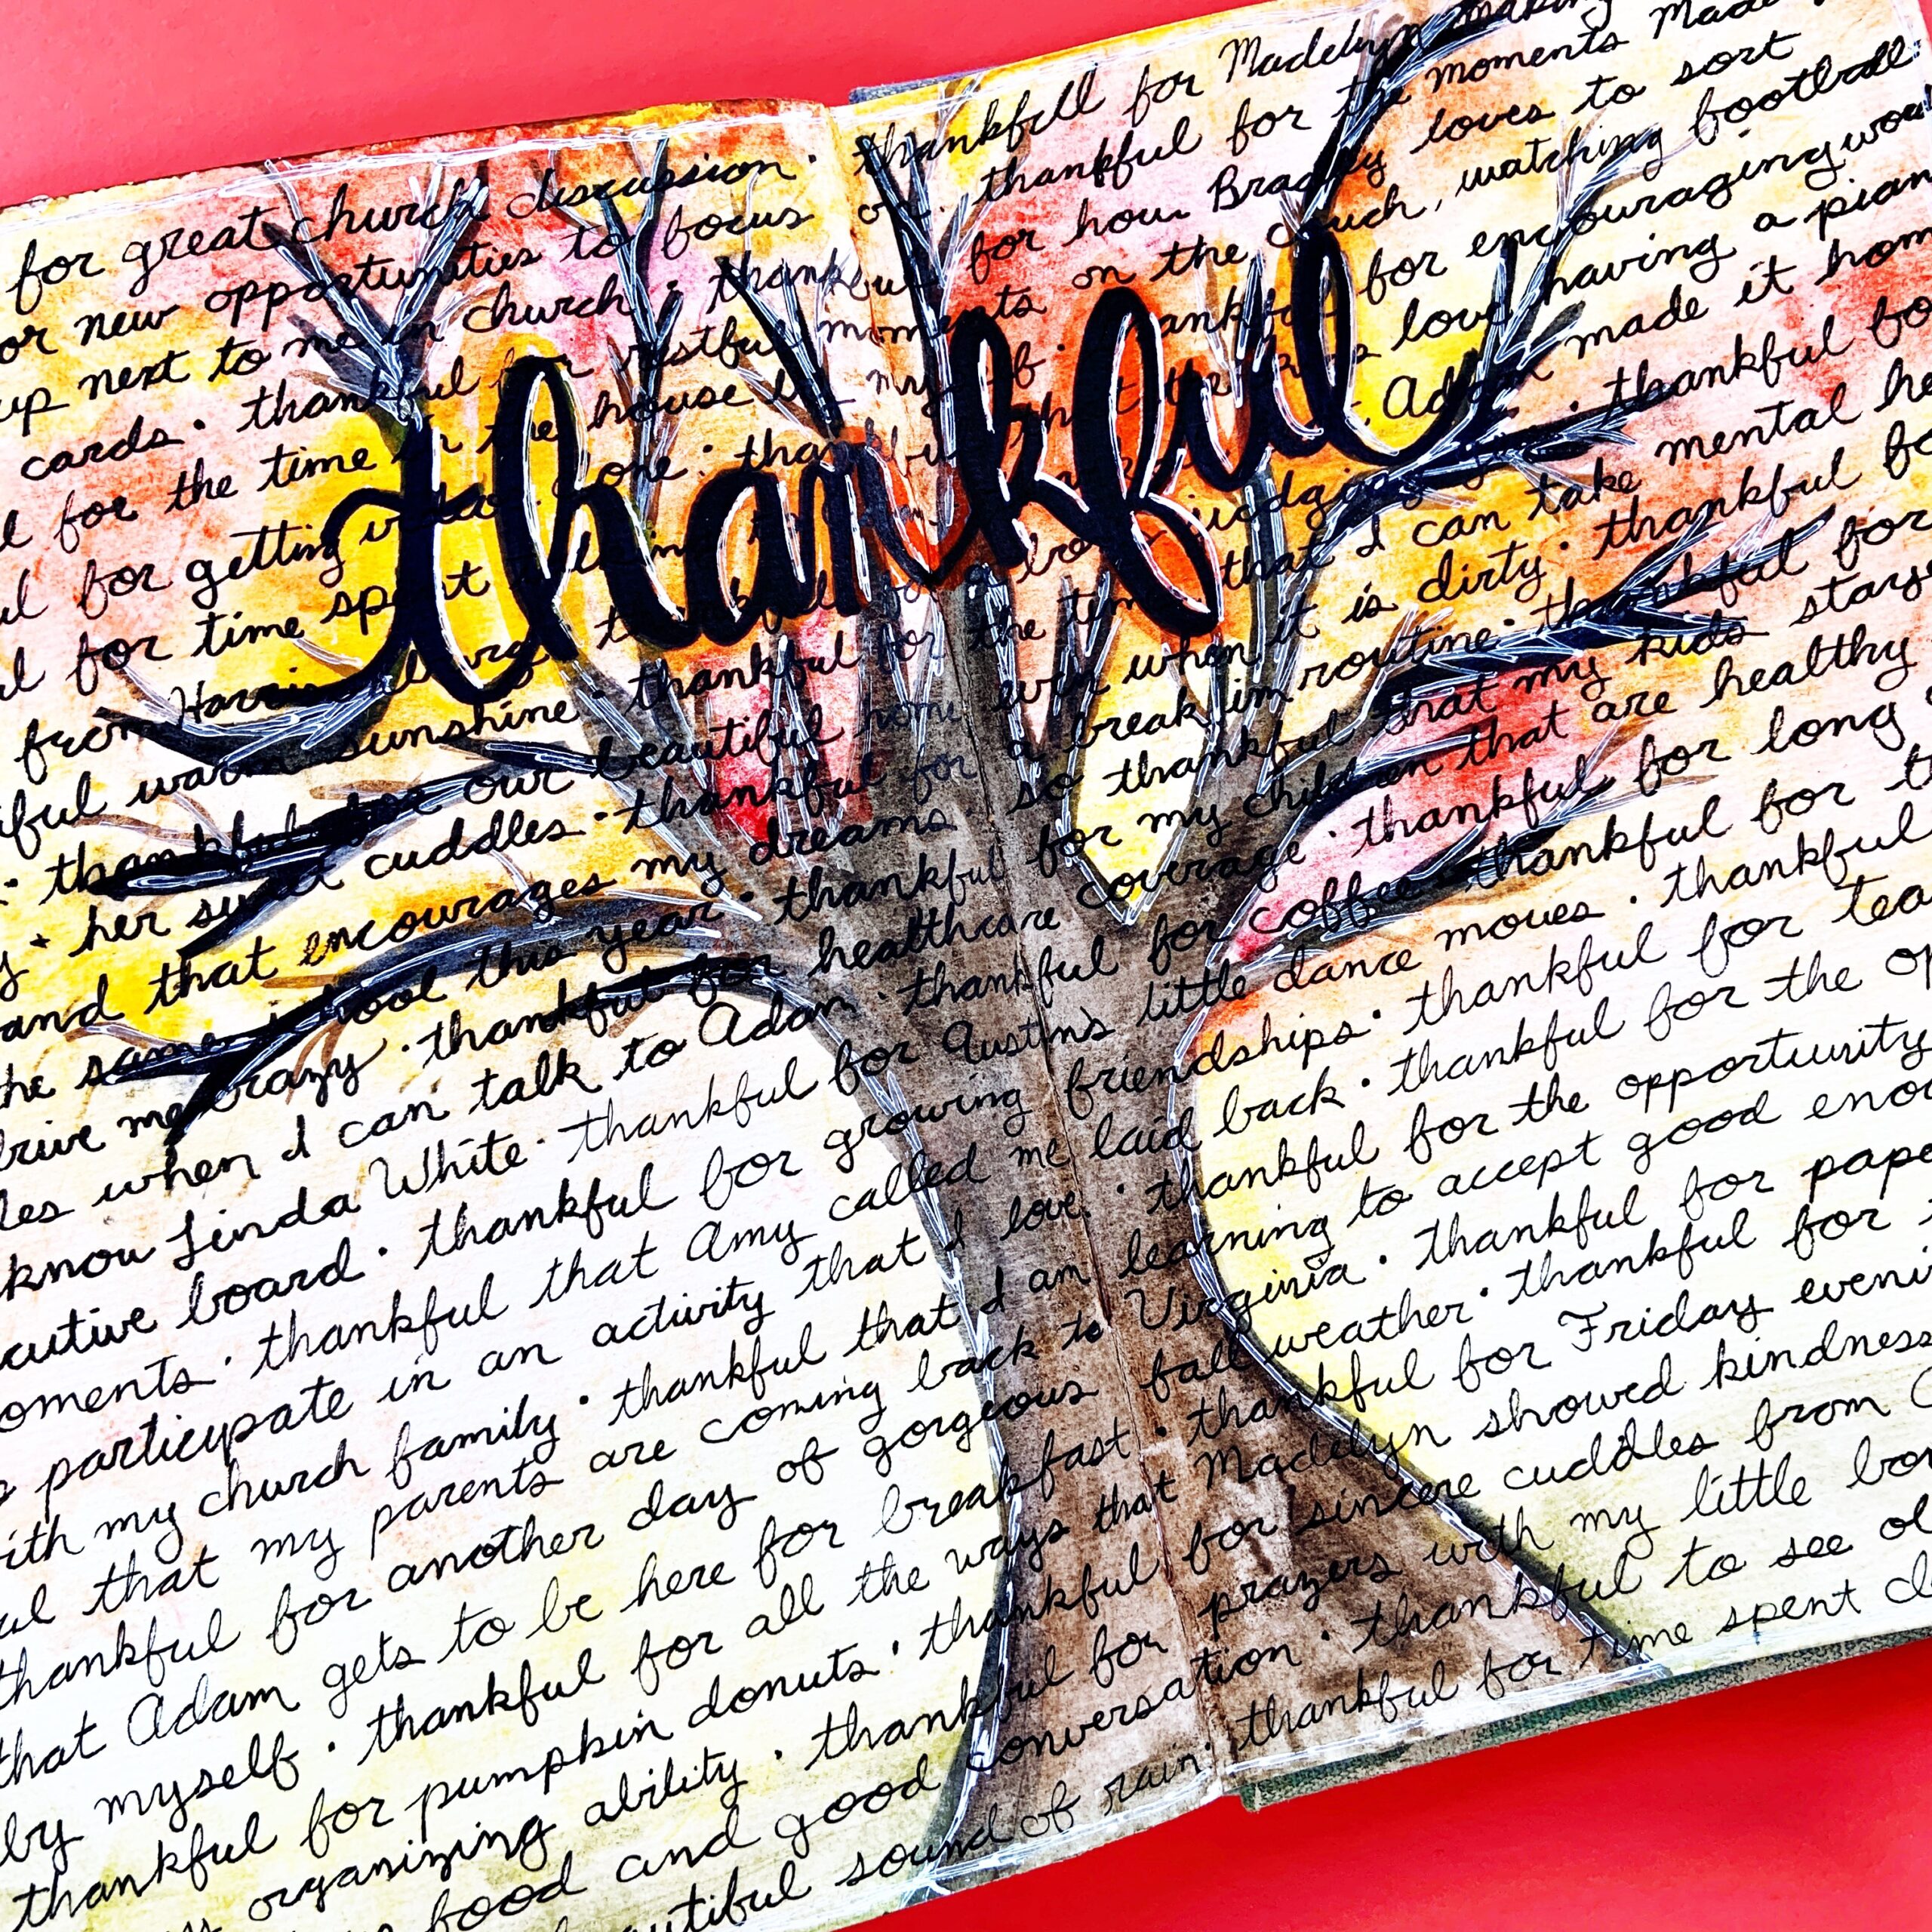 for great church discussion · thankfull for Madelyn making
or new opportunities to focus on · thankful for the moments Made
up next to me in church · thankful for how Bradley loves to sort
cards · thankful for restful moments on the couch, watching football
l for the time in the house by myself · thankful for encouraging wor
ul for getting done · thankful that love having a pian
ul for time spent · Adam made it hom
from Harrisonburg judging · thankful bo
iful warm sunshine · thankful for the time that I can take mental he
· thankful for our beautiful home even when it is dirty · thankful fo
y + her sweet cuddles · thankful for a break in routine · thankful for
and that encourages my dreams · so thankful that my kids staye
the same school this year · thankful for my children that are healthy
drive me crazy · thankful for healthcare coverage · thankful for long
les when I can talk to Adam · thankful for coffee · thankful for t
know Linda White · thankful for Austin's little dance moves · thankful
cutive board · thankful for growing friendships · thankful for tea
oments · thankful that Amy called me laid back · thankful for the op
participate in an activity that I love · thankful for the opportunity
ith my church family · thankful that I am learning to accept good eno
ul that my parents are coming back to Virginia · thankful for pape
thankful for another day of gorgeous fall weather · thankful for
that Adam gets to be here for breakfast · thankful for Friday eveni
by myself · thankful for all the ways that Madelyn showed kindness
thankful for pumpkin donuts · thankful for sincere cuddles from
organizing ability · thankful for prayers with my little bo
food and good conversation · thankful to see ol
autiful sound of rain · thankful for time spent
thankful